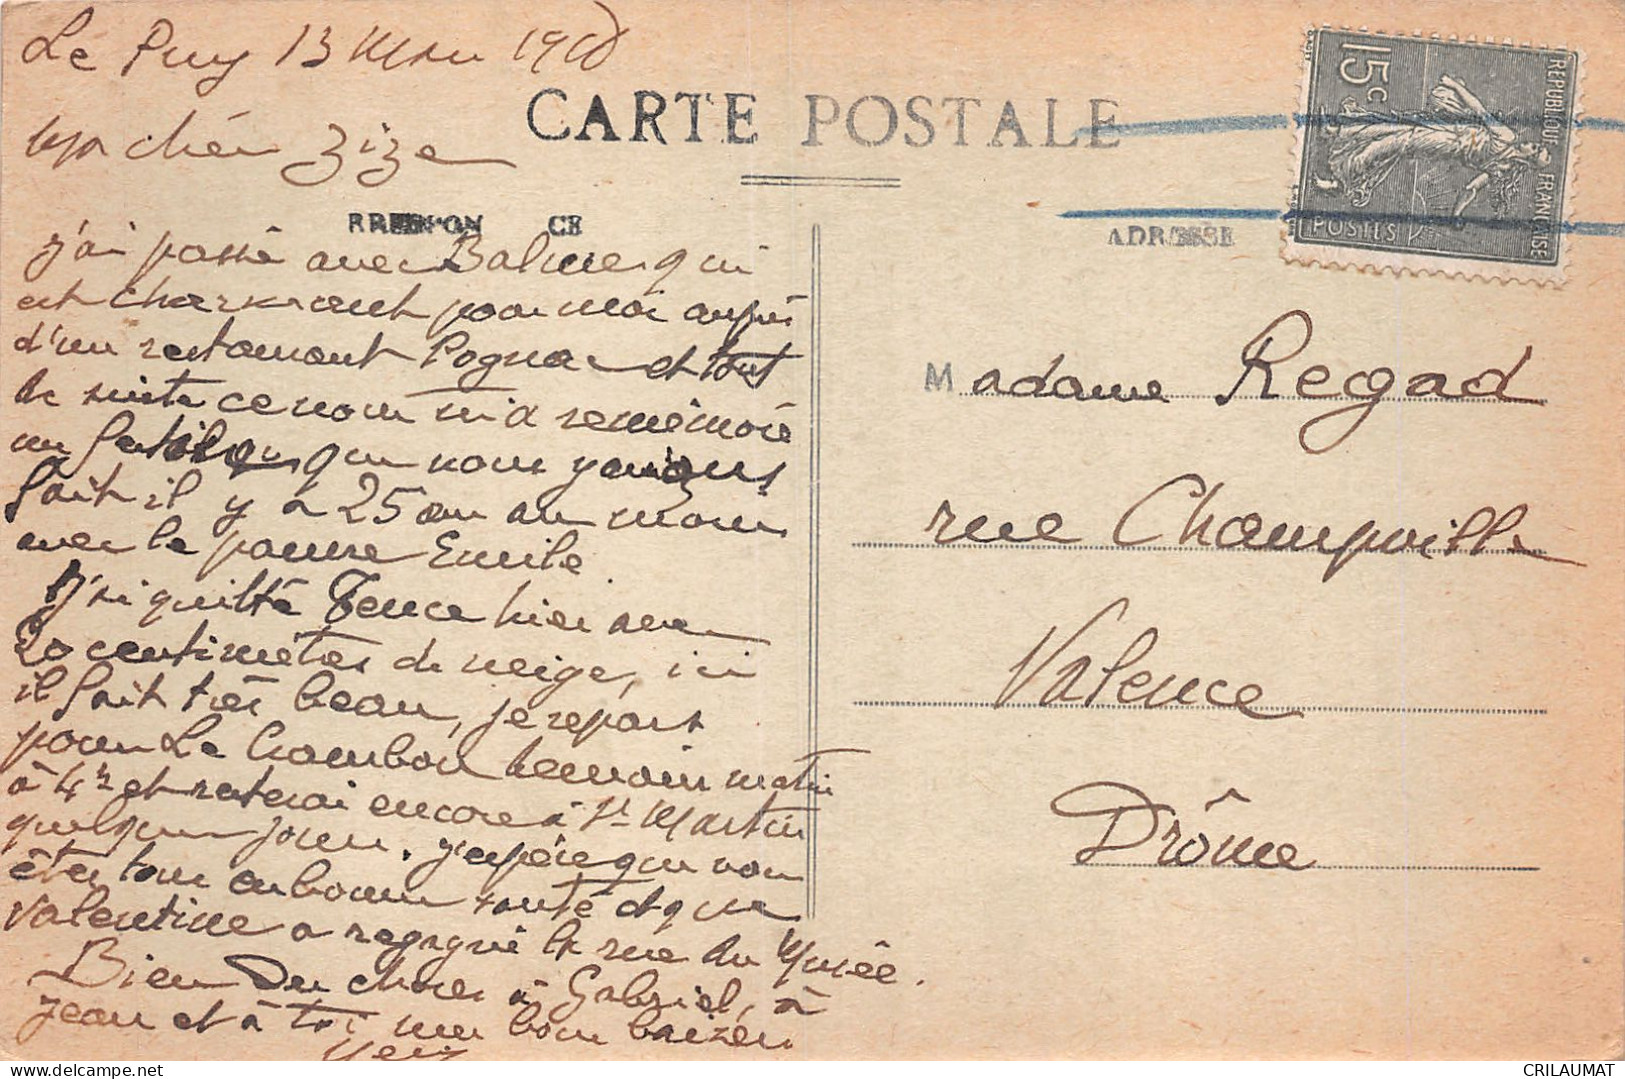 Le Puy 13 Mars 19
Ma chère Zize
CARTE POSTALE
CE
ADRESSE
REPUBLIQUE FRANÇAISE
15c
POSTES
j'ai passé avec Balme qui
est charmant pour moi auprès
d'un restaurant Pognac et tout
de suite ce nom m'a remémoré
un qui nous
fait il y a 25 ans au moins
avec le pauvre Emile.
J'ai quitté Tence hier avec
20 centimètres de neige, ici
il fait très beau, je repars
pour Le Chambon demain matin
à 4h et resterai encore à St Martin
quelques jours. j'espère que vous
êtes tous en bonne santé et que
Valentine a regagné la rue du Musée.
Bien des choses à Gabriel, à
Jean et à toi, un bon baizer.
Madame Regad
rue Champville
Valence
Drôme
CRILAUMAT